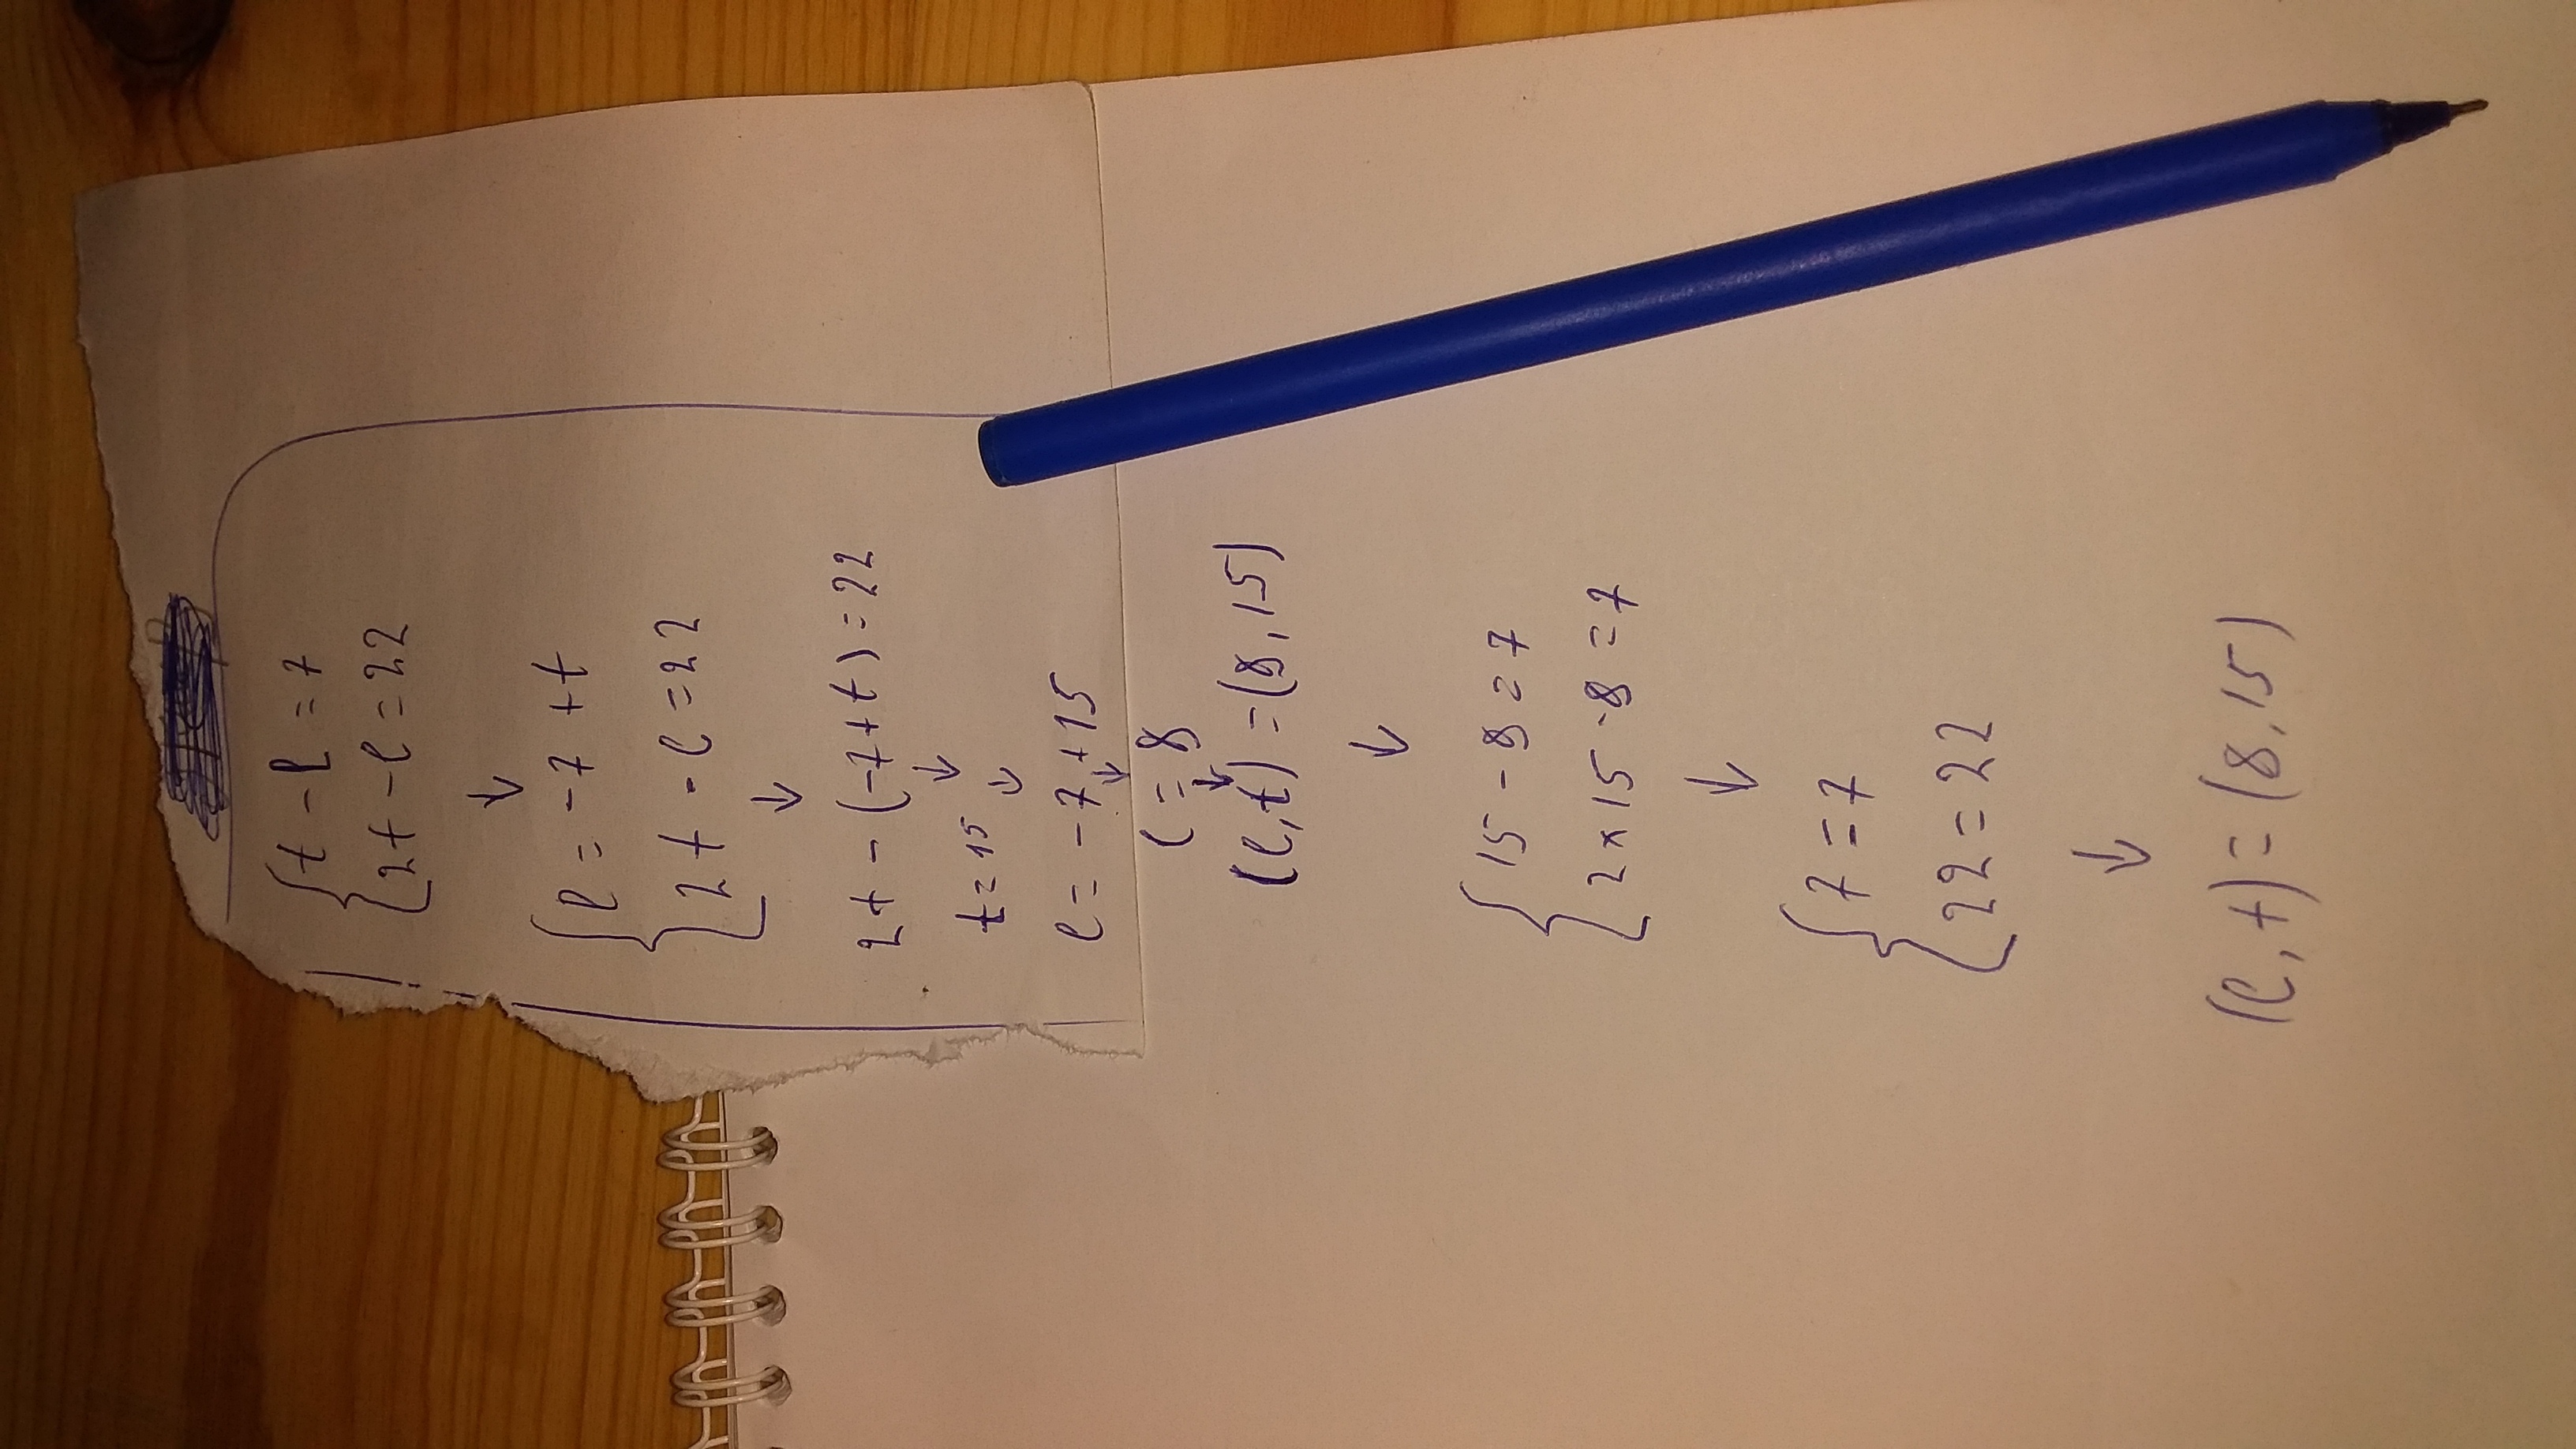 {t - l = 7
{2t - l = 22
↓
{l = -7 + t
{2t - l = 22
↓
2t - (-7+t) = 22
↓
t = 15
↓
l = -7 + 15
↓
l = 8
↓
(l,t) = (8,15)
↓
{15 - 8 = 7
{2 x 15 - 8 = 7
↓
{7 = 7
{22 = 22
↓
(l,t) = (8,15)